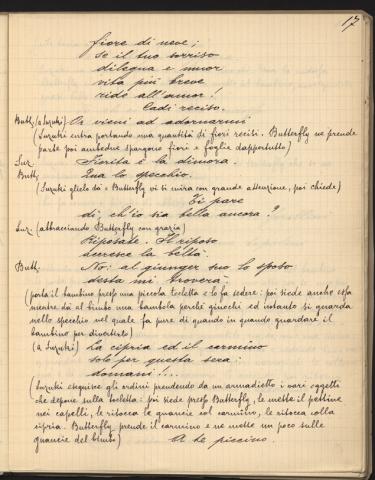 17
fiore di neve;
se il tuo sorriso
dilegua e muor
vita più breve
ride all'amor!
Cadi reciso.
Butt. (a Suzuki) Or vieni ad adornarmi
(Suzuki entra portando una quantità di fiori recisi. Butterfly ne prende
parte poi ambedue spargono fiori e foglie dappertutto)
Suz. Fiorita è la dimora.
Butt. Qua lo specchio.
(Suzuki glielo dà e Butterfly vi si mira con grande attenzione, poi chiede)
Ti pare
di, ch'io sia bella ancora?
Suz. (abbracciando Butterfly con grazia)
Riposate. Il riposo
accresce la beltà.
Butt. No: al giunger suo lo sposo
desta mi troverà.
(porta il bambino presso una piccola toeletta e lo fa sedere: poi siede anche essa
mentre dà al bimbo una bambola perchè giuochi ed intanto si guarda
nello specchio nel quale fa pure di quando in quando guardare il
bambino per divertirlo)
(a Suzuki) La cipria ed il carmino
solo per questa sera:
domani!...
(Suzuki eseguisce gli ordini prendendo da un armadietto i vari oggetti
che depone sulla toeletta: poi siede presso Butterfly, le mette il pettine
nei capelli, le ritocca le guancie col carmino, le ritocca colla
cipria. Butterfly prende il carmino e ne mette un poco sulle
guancie del bimbo) A te piccino.